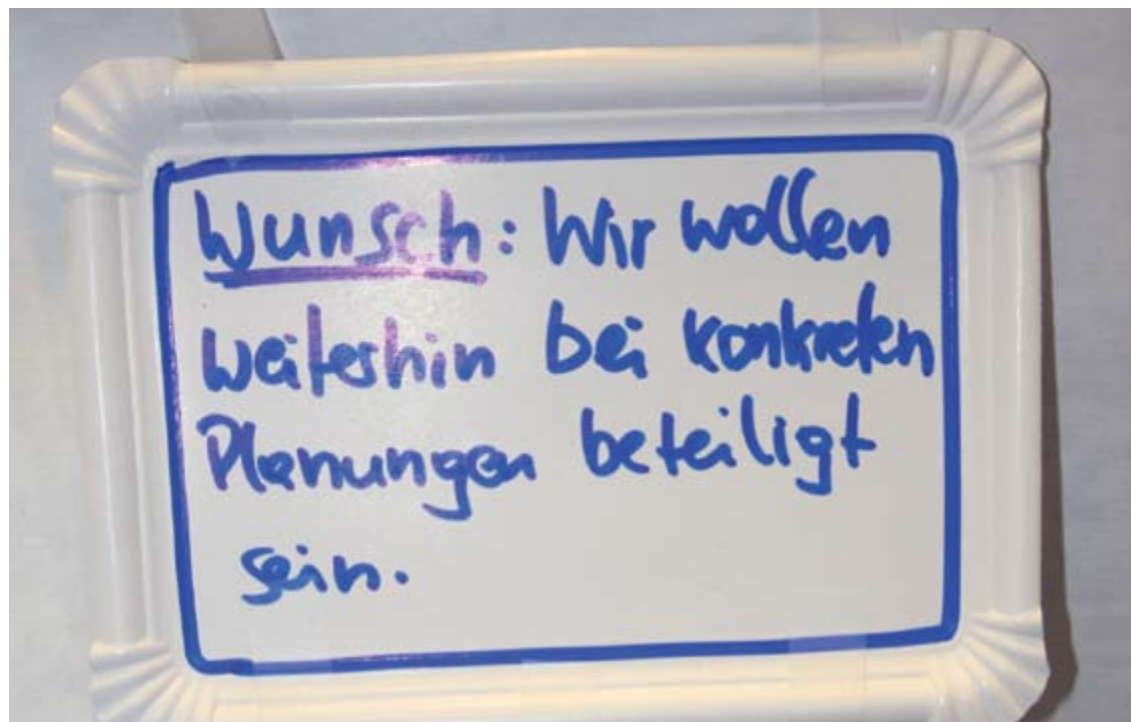 Wunsch: Wir wollen
weiterhin bei konkreten
Planungen beteiligt
sein.